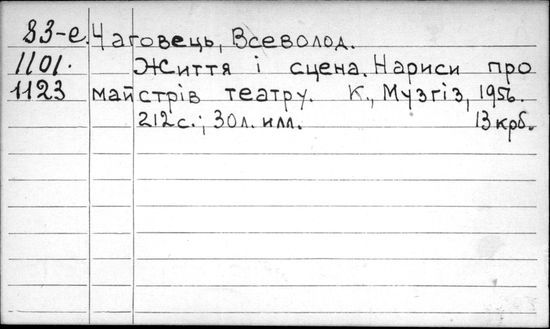 83-е. Чаговець, Всеволод.
1101. Життя і сцена. Нариси про
1123 майстрів театру. К., Музгіз, 1956.
212с.; 30л. илл. 13 крб.